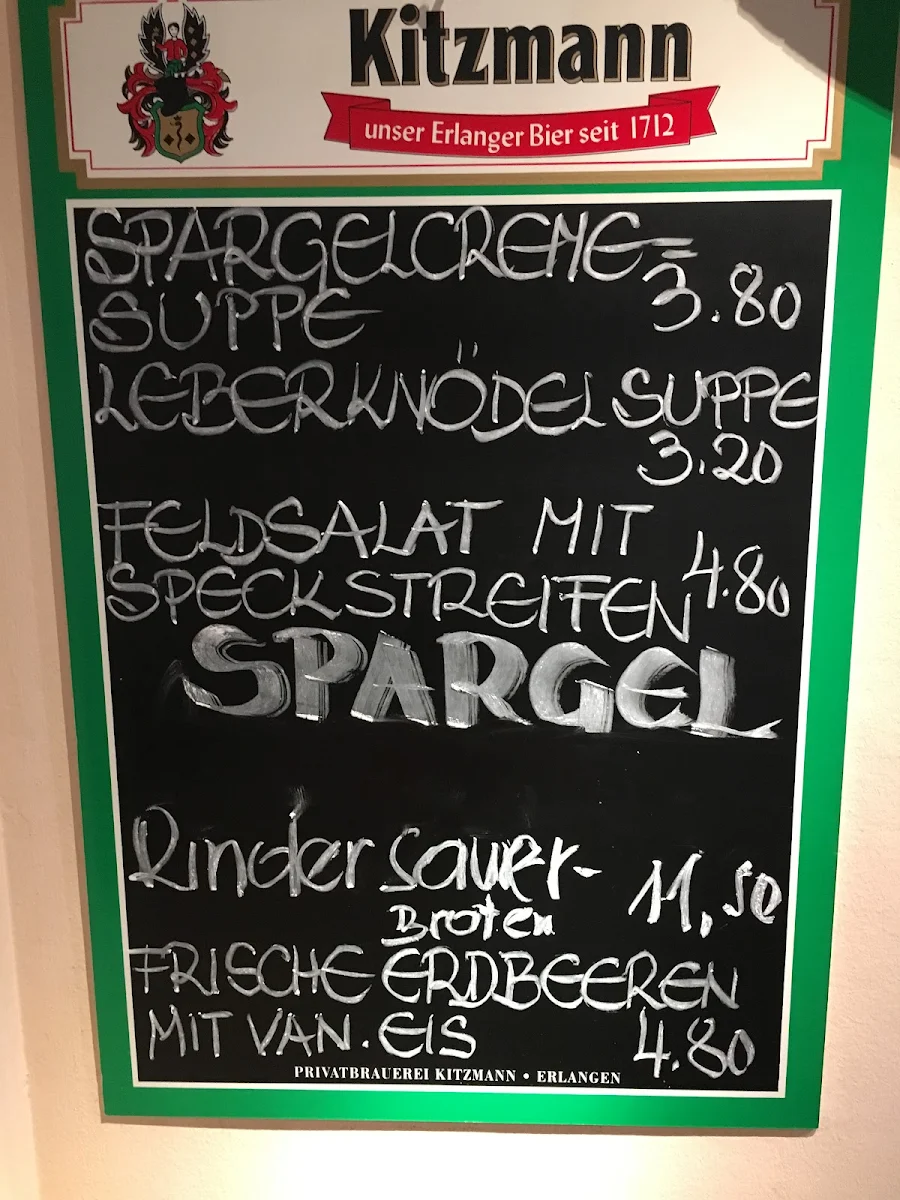 Kitzmann
unser Erlanger Bier seit 1712
SPARGELCREME-
SUPPE 3.80
LEBERKNÖDELSUPPE
3.20
FELDSALAT MIT
SPECKSTREIFEN 4.80
SPARGEL
Rinder Sauer- 11,50
Broten
FRISCHE ERDBEEREN
MIT VAN. EIS 4.80
PRIVATBRAUEREI KITZMANN • ERLANGEN